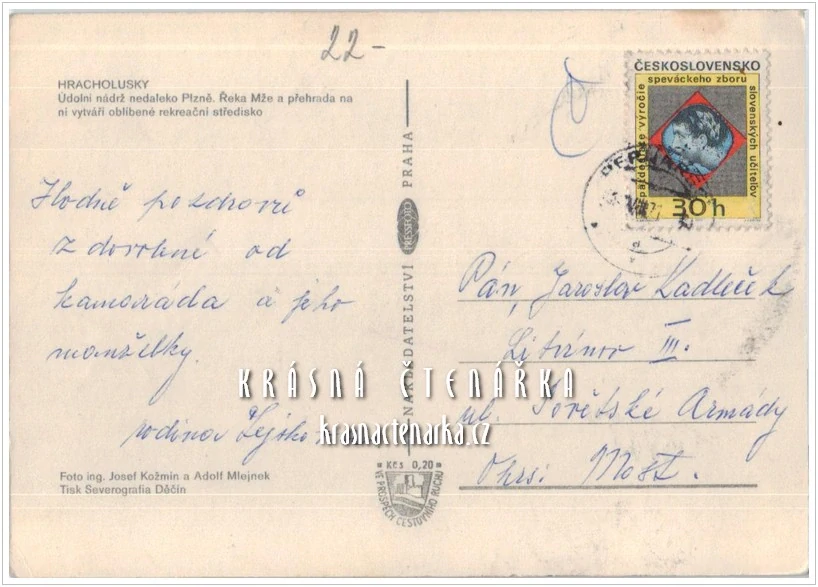 22-
HRACHOLUSKY
Údolní nádrž nedaleko Plzně. Řeka Mže a přehrada na
ní vytváří oblíbené rekreační středisko
Hodně pozdravů
z dovolené od
kamaráda a jeho
manželky.
rodina
Foto ing. Josef Kožmín a Adolf Mlejnek
Tisk Severografia Děčín
NAKLADATELSTVÍ PRESSFOTO PRAHA
Kčs 0,20
VE PROSPĚCH CESTOVNÍHO RUCHU
ČESKOSLOVENSKO
päťdesiate výročie
speváckeho zboru
slovenských učiteľov
30h
Pán, Jaroslav Kadleček
Litvínov III.
ul. Sovětské Armády
Okrsí Most.
KRÁSNÁ ČTENÁŘKA
krasnactenarka.cz